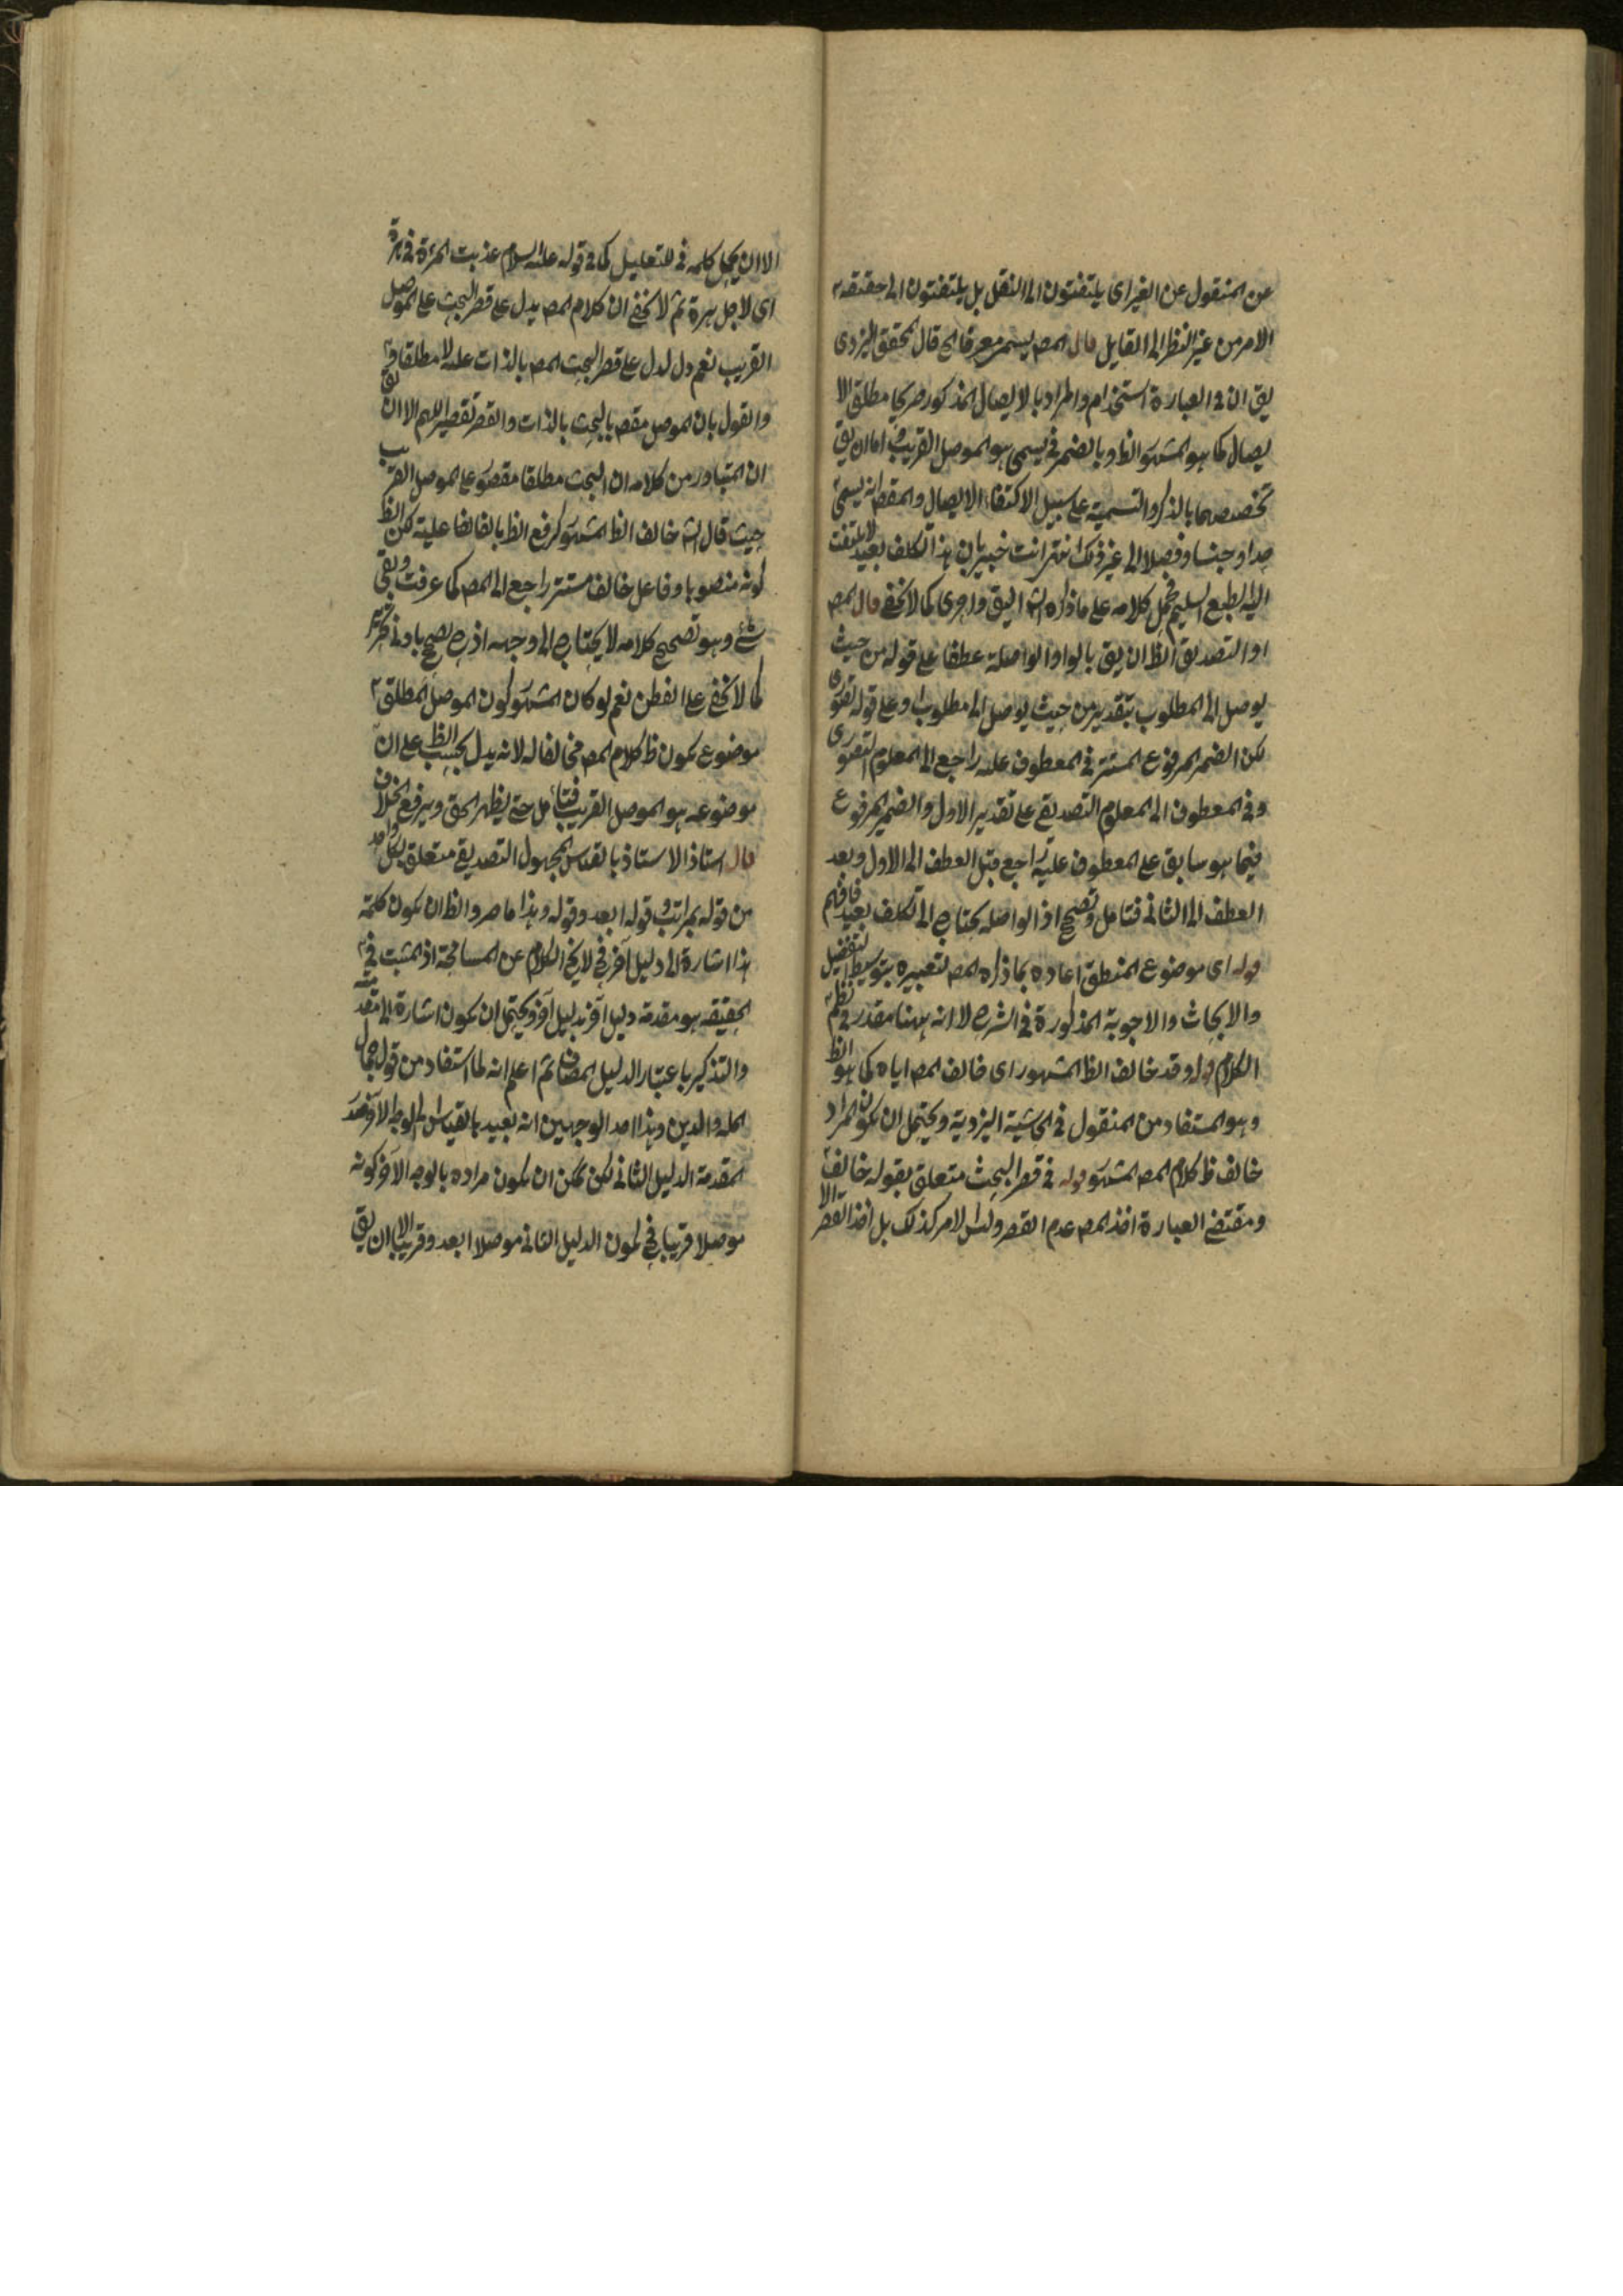 عن المنقول عن الغير اى يلتفتون الى النقل بل يلتفتون الى حقيقة
الامر من غير النظر الى القايل قال المصـ يسمى معرفا الخ قال المحقق اليزدى
يق ان فى العبارة استخدام والمراد بالايصال المذكور صريحا مطلق الا
يصال كما هو المشهور الظ وبالضمير فى يسمى هو الموصل القريب اما ان يق
تخصصهما بالذكر والتسمية على سبيل الاكتفاء الايصال والمقصـ انه يسمى
حدا وجنسا وفصلا الى غير ذلك انتهى انت خبير بان هذا تكلف بعيد لا يلتفت
اليه الطبع السليم فحمل كلامه على ما ذكره الشـ اليق واحرى كما لا يخفى قال المصـ
او التصديق الظ ان يق بالواو الواصلة عطفا على قوله من حيث
يوصل الى المطلوب بتقدير من حيث يوصل الى مطلوب او على قوله تصورى
لكن الضمير المرفوع المستتر فى المعطوف عليه راجع الى المعلوم التصورى
وفى المعطوف الى المعلوم التصديقى على تقدير الاول والضمير المرفوع
فيما هو سابق على المعطوف عليه راجع قبل العطف الى الاول وبعد
العطف الى الثانى فتامل وتصحيح اذ الواصلة يحتاج الى تكلف بعيد فافهم
قوله اى موضوع المنطق اعاده بما ذكره المصـ لتعبيره بتوسيط التفصيل
والابحاث والاجوبة المذكورة فى الشرح لا انه ههنا مقدر فى نظم
الكلام قوله وقد خالف الظ المشهور اى خالف المصـ اياه كما هو الظ
وهو المستفاد من المنقول فى الحاشية اليزدية ويحتمل ان يكون المراد
خالف ظ كلام المصـ المشهور قوله فى قصر البحث متعلق بقوله خالف
ومقتضى العبارة اخذ المصـ عدم القصر وليس الامر كذلك بل اخذ القصر الا
الا ان يجعل كلمه فى للتعليل كما فى قوله عليه السلام عذبت امرءة فى هرة
اى لاجل هرة ثم لا يخفى ان كلام المصـ يدل على قصر البحث على الموصل
القريب نعم يدل على قصر البحث المصـ بالذات عليه لا مطلقا
والقول بان الموصل مقصـ بالبحث بالذات والقصر تقصير اللهم الا ان يق
ان المتبادر من كلامه ان البحث مطلقا مقصور على الموصل القريب
حيث قال الشـ خالف الظ المشهور كرفع الظ بالفا لخا عليه لكن الظ
كونه منصوبا وفاعل خالف مستتر راجع الى المصـ كما عرفت وبقى
شئ وهو تصحيح كلامه لا يحتاج الى وجه اذ يصح بادنى
كما لا يخفى على الفطن نعم لو كان المشهور كون الموصل المطلق
موضوع لكون ظ كلام المصـ مخالفا له لانه يدل بحسب الظ على ان
موضوعه هو الموصل القريب فتامل حتى يظهر الحق ويرفع الخلاف
قال استاذ الاستاذ بالقياس المجهول التصديقى متعلق بكل واحد
من قوله بمراتب وقوله ابعد وقوله وهذا ما صر والظ ان يكون كلمة
هذا اشارة الى دليل آخر فح لا يخ الكلام عن المسامحة اذ المثبت فى
الحقيقة هو مقدمة دليل آخر لا دليل آخر ويحتمل ان يكون اشارة الى مقدمته
والتذكير باعتبار الدليل المضاف ثم اعلم انه لما استفاد من قول جمال
المله والدين وهذا احد الوجهين انه بعيد بالقياس المطلوب الآخر
المقدمة الدليل الثانى لكن يمكن ان يكون مراده بالوجه الآخر كونه
موصلا قريبا فح لكون الدليل الثانى موصلا ابعد وقريبا الا ان يق